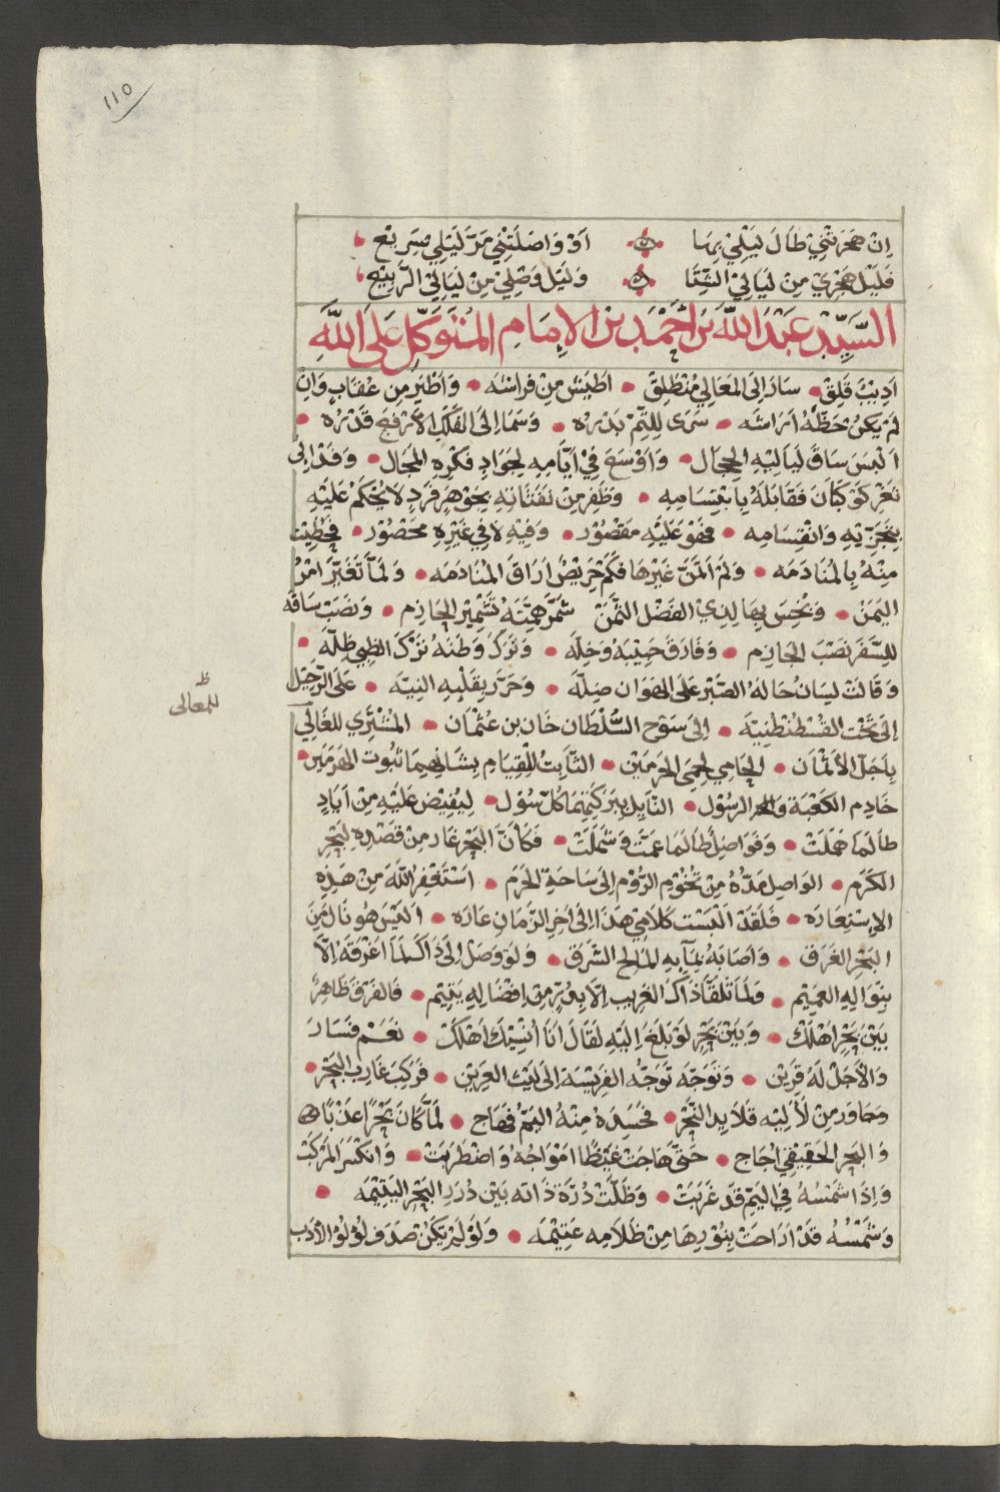 ١١٥
اِنْ هَجَرَتْنِيْ طَالَ لَيْلِيْ بِهَا ۞ اَوْ وَاصَلَتْنِيْ مَرَّ لَيْلِي سَرِيْع
فَلَيْل هَجْرِي مِنْ لَيَالِيْ الشِّتَا ۞ وَلَيْل وَصْلِيْ مِنْ لَيَالِيْ الرَّبِيْع
السَّيِّد عَبْد اللّٰه بن أحْمَد بن الامَام المُتَوَكِّل عَلَى اللّٰه
اَدِيْبٌ قَلِقْ • سَارَ اِلَى المَعَالِي مُنْطَلِقْ • اَطْيَش مِنْ فَرَاشَه • وَاَطْيَر مِن عُقَابٍ وَاِنْ
لَمْ يَكنْ حَظّهُ اَرَاشَه • سَرَى لِلتِّمّ بَدْرُه • وَسَمَا اِلَى الفَلَك الارْفَع قَدْرُه •
اَلْبَسَ سَاقَ لَيَالِيْهِ الحِجَال • وَاَوْسَعَ فِيْ اَيَّامِهِ لِجَوَادِ فِكْرِهِ المَجَال • وَفَدَ اِلَى
ثَغْر كَوْكَبَانَ فَقَابَلَهُ بِابْتِسَامِهِ • وَظَفِرَ مِنْ نَفَثَاتِهِ بِجَوْهَرٍ فَرْدٍ لَا يُحْكَمْ عَلَيْهِ
بِتَجَزِّيْهِ وَانْقِسَامِه • فَهُوَ عَلَيْهِ مَقْصُوْر • وَفِيْهِ لَا فِي غَيْرِهِ مَحْصُوْر • فَحظِيْت
مِنْهُ بِالمُنَادَمَه • وَلَمْ اَتَمَنَّ غَيْرهَا فَكَمْ حَرِيْصٌ اَرَاقَ المُنَادَمَه • وَلَمَّا تَغَيَّرَ اَمْرُ
اليَمَنْ • وَبُخِسَ بِهَا لِذِيْ الفَضْل الثَّمَنْ شَمَّرَ هِمَّتَهُ تَشْمِيْر الحَازِم • وَنَصَبَ سَاقَه
لِلسَّفَر نَصْبَ الجَازِم • وَفَارَقَ حَبِيْبَهُ وَخِلَّه • وَتَرَكَ وَطَنَهُ تَرْكَ الظَّبِي ظِلَّه •
وَقَالَتْ لِسَانُ حَالهُ الصَّبْر عَلَى الهَوَان ضِلَّه • وَحَرَّرَ بِقَلْبِهِ النِيَّه • عَلَى الرَّحِيْل
اِلَى تَخْت القُسْطَنْطَنِيَّه • اِلَى سَوْح السُّلْطَان خَان بن عُثْمَان • المُشْتَرِي للغَالِي
بِاَجَلّ الاَثْمَان • الحَامِي لِحِمَى الحَرَمَيْن • الثَّابِتُ لِلْقِيَامِ بِشَانِهِمَا ثُبُوت الهَرَمَيْن •
خَادِم الكَعْبَة والرسُوْل • النَّايِل بِبَرَكَتِهِمَا كُلّ سُوْل • لِيُفِيْض عَلَيْهِ مِنْ اَيَادٍ
طَالَمَا هَمَلَتْ • وَفَوَاضِل طَالَمَا عَمَّتْ وَشَمِلَتْ • فَكَانَّ البَحْر غَار مِنْ قَصْدِهِ لِبَحْرِ
الكَرَم • الوَاصِل مَدّهُ مِنْ تُخُوْمِ الرُّوْم اِلَى سَاحَة الحَرَم • اَسْتَغْفِر اللّٰهَ مِنْ هَذِهِ
الاِسْتِعَارَه • فَلَقَدْ اَلْبَسَت كَلَامِي هَذَا اِلَى اٰخِر الزَّمَان عَارَه • اَلَيْسَ هُوَ نَالَ مِنَ
البَحْر الغَرَق • وَاَصَابَهُ بِمَآئِهِ المَالِح الشَّرَق • وَلَوْ وَصَلَ اِلَى ذَاكَ لَمَا اَغْرَقَهُ اِلَّا
بِنَوَالِهِ العَمِيْم • وَلَمَا تَلَقَّا ذَاكَ الغَرِيب اِلَّا بِبِرٍّ مِنْ اَفْضَالِهِ يَتِيْم • فَالفَرْق ظَاهِرٌ
بَيْنَ بَحْرٍ اَهْلَكْ • وَبَيْنَ بَحْر لَوْ بَلَغَ اِلَيْهِ لَقَالَ اَنَا اُنْسِيْكَ اَهْلَكْ • نَعَمْ فَسَارَ
وَالاَجَلُ لَهُ قَرِيْن • وَتَوَجَّهَ تَوَجُّهَ الفَرِيْسَة اِلَى لَيْث العَرِيْن • فَرَكِبَ غَارِب البَحْر •
وَجَاوَرَ مِنْ لَآلِيْه قَلَايِد النَّحْر • فَحَسَدَهُ مِنْهُ اليَمّ فَهَاج • لَمَّا كَانَ بَحْرًا عَذْبًا
وَالبَحر الحَقِيْقِي اُجَاج • حَتَّى هَاجَتْ غَيْظًا اَمْوَاجُهُ وَاضْطَرَبَتْ • وَانْكَسَرَ المَرْكَبُ
وَاِذَا شَمْسُهُ فِي اليَمّ قَد غَرَبَتْ • وَظَلَّتْ دُرَّة ذَاته بَيْن دُرَرِ البَحْر اليَتِيْمَه •
وَشَمْسُهُ قَدْ اَزَاحَتْ بِنُوْرِهَا مِنْ ظَلَامِه عَتِيْمَه • وَلَوْ لَمْ يَكُنْ صَدَف لُؤلُؤ الاَدَب
ظ
للمعالى